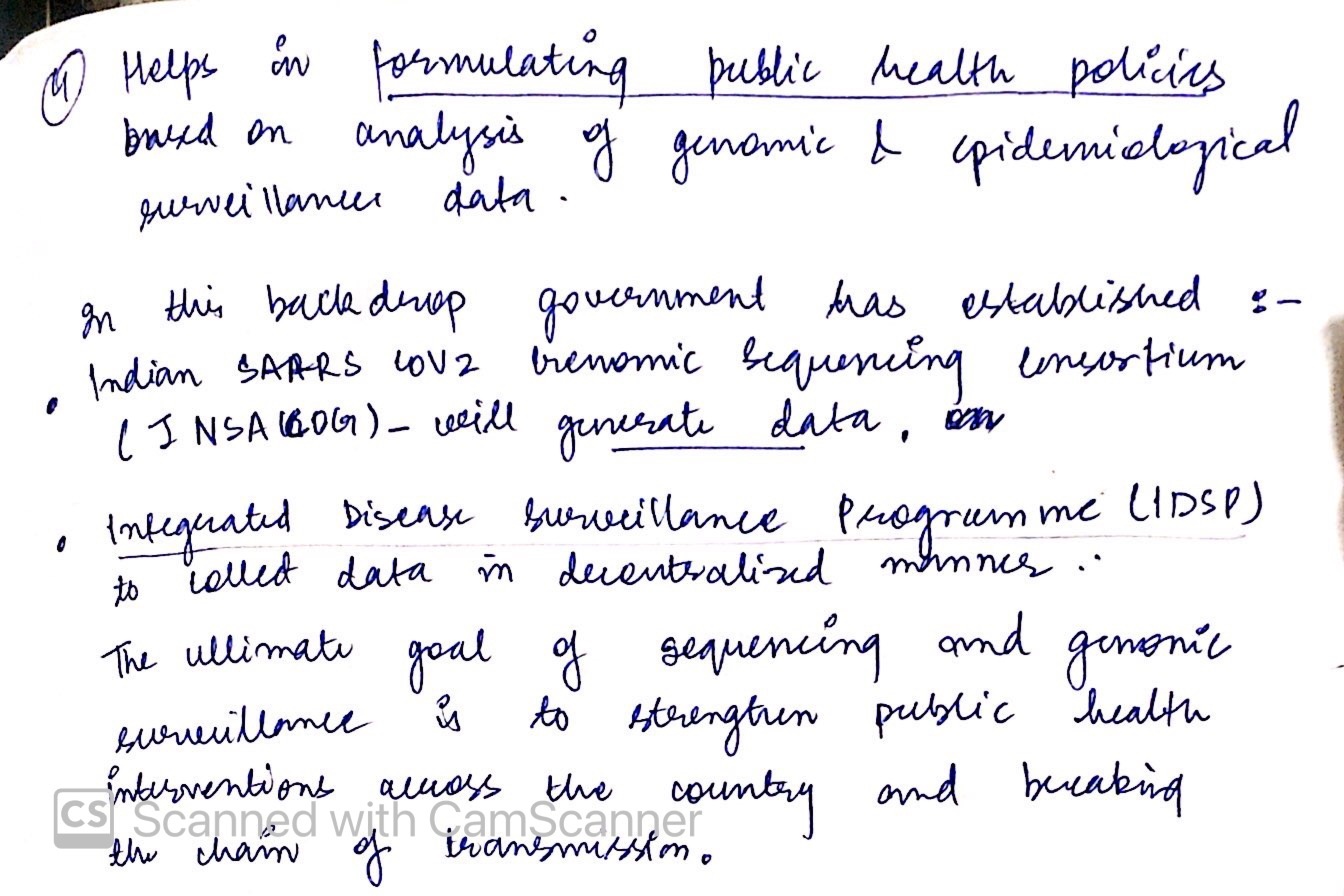 ④ Helps in formulating public health policies
based on analysis of genomic & epidemiological
surveillance data.
In this backdrop government has established :-
• Indian SARRS COV2 Genomic Sequencing Consortium
(INSACOG) - will generate data,
• Integrated Disease Surveillance Programme (IDSP)
to collect data in decentralized manner.
The ultimate goal of sequencing and genomic
surveillance is to strengthen public health
interventions across the country and breaking
the chain of transmission.
CS Scanned with CamScanner